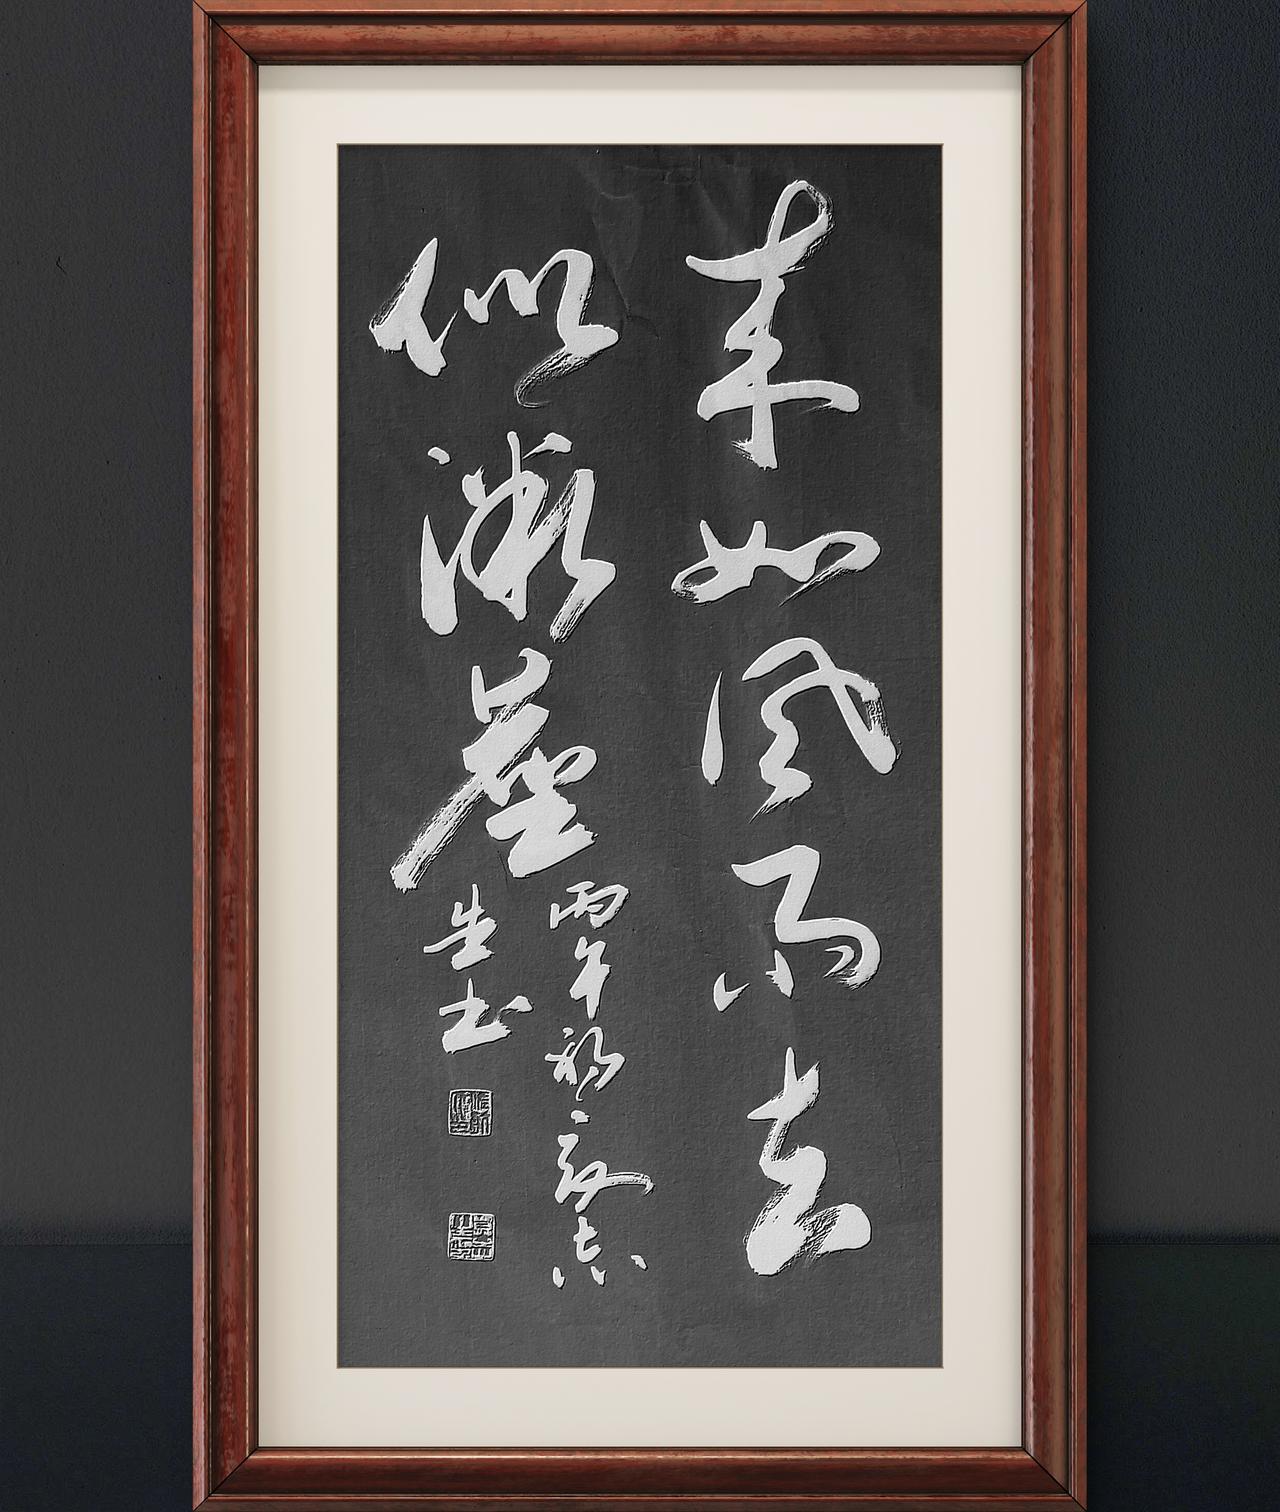 来如风雨去
似微塵
丙午初
生书